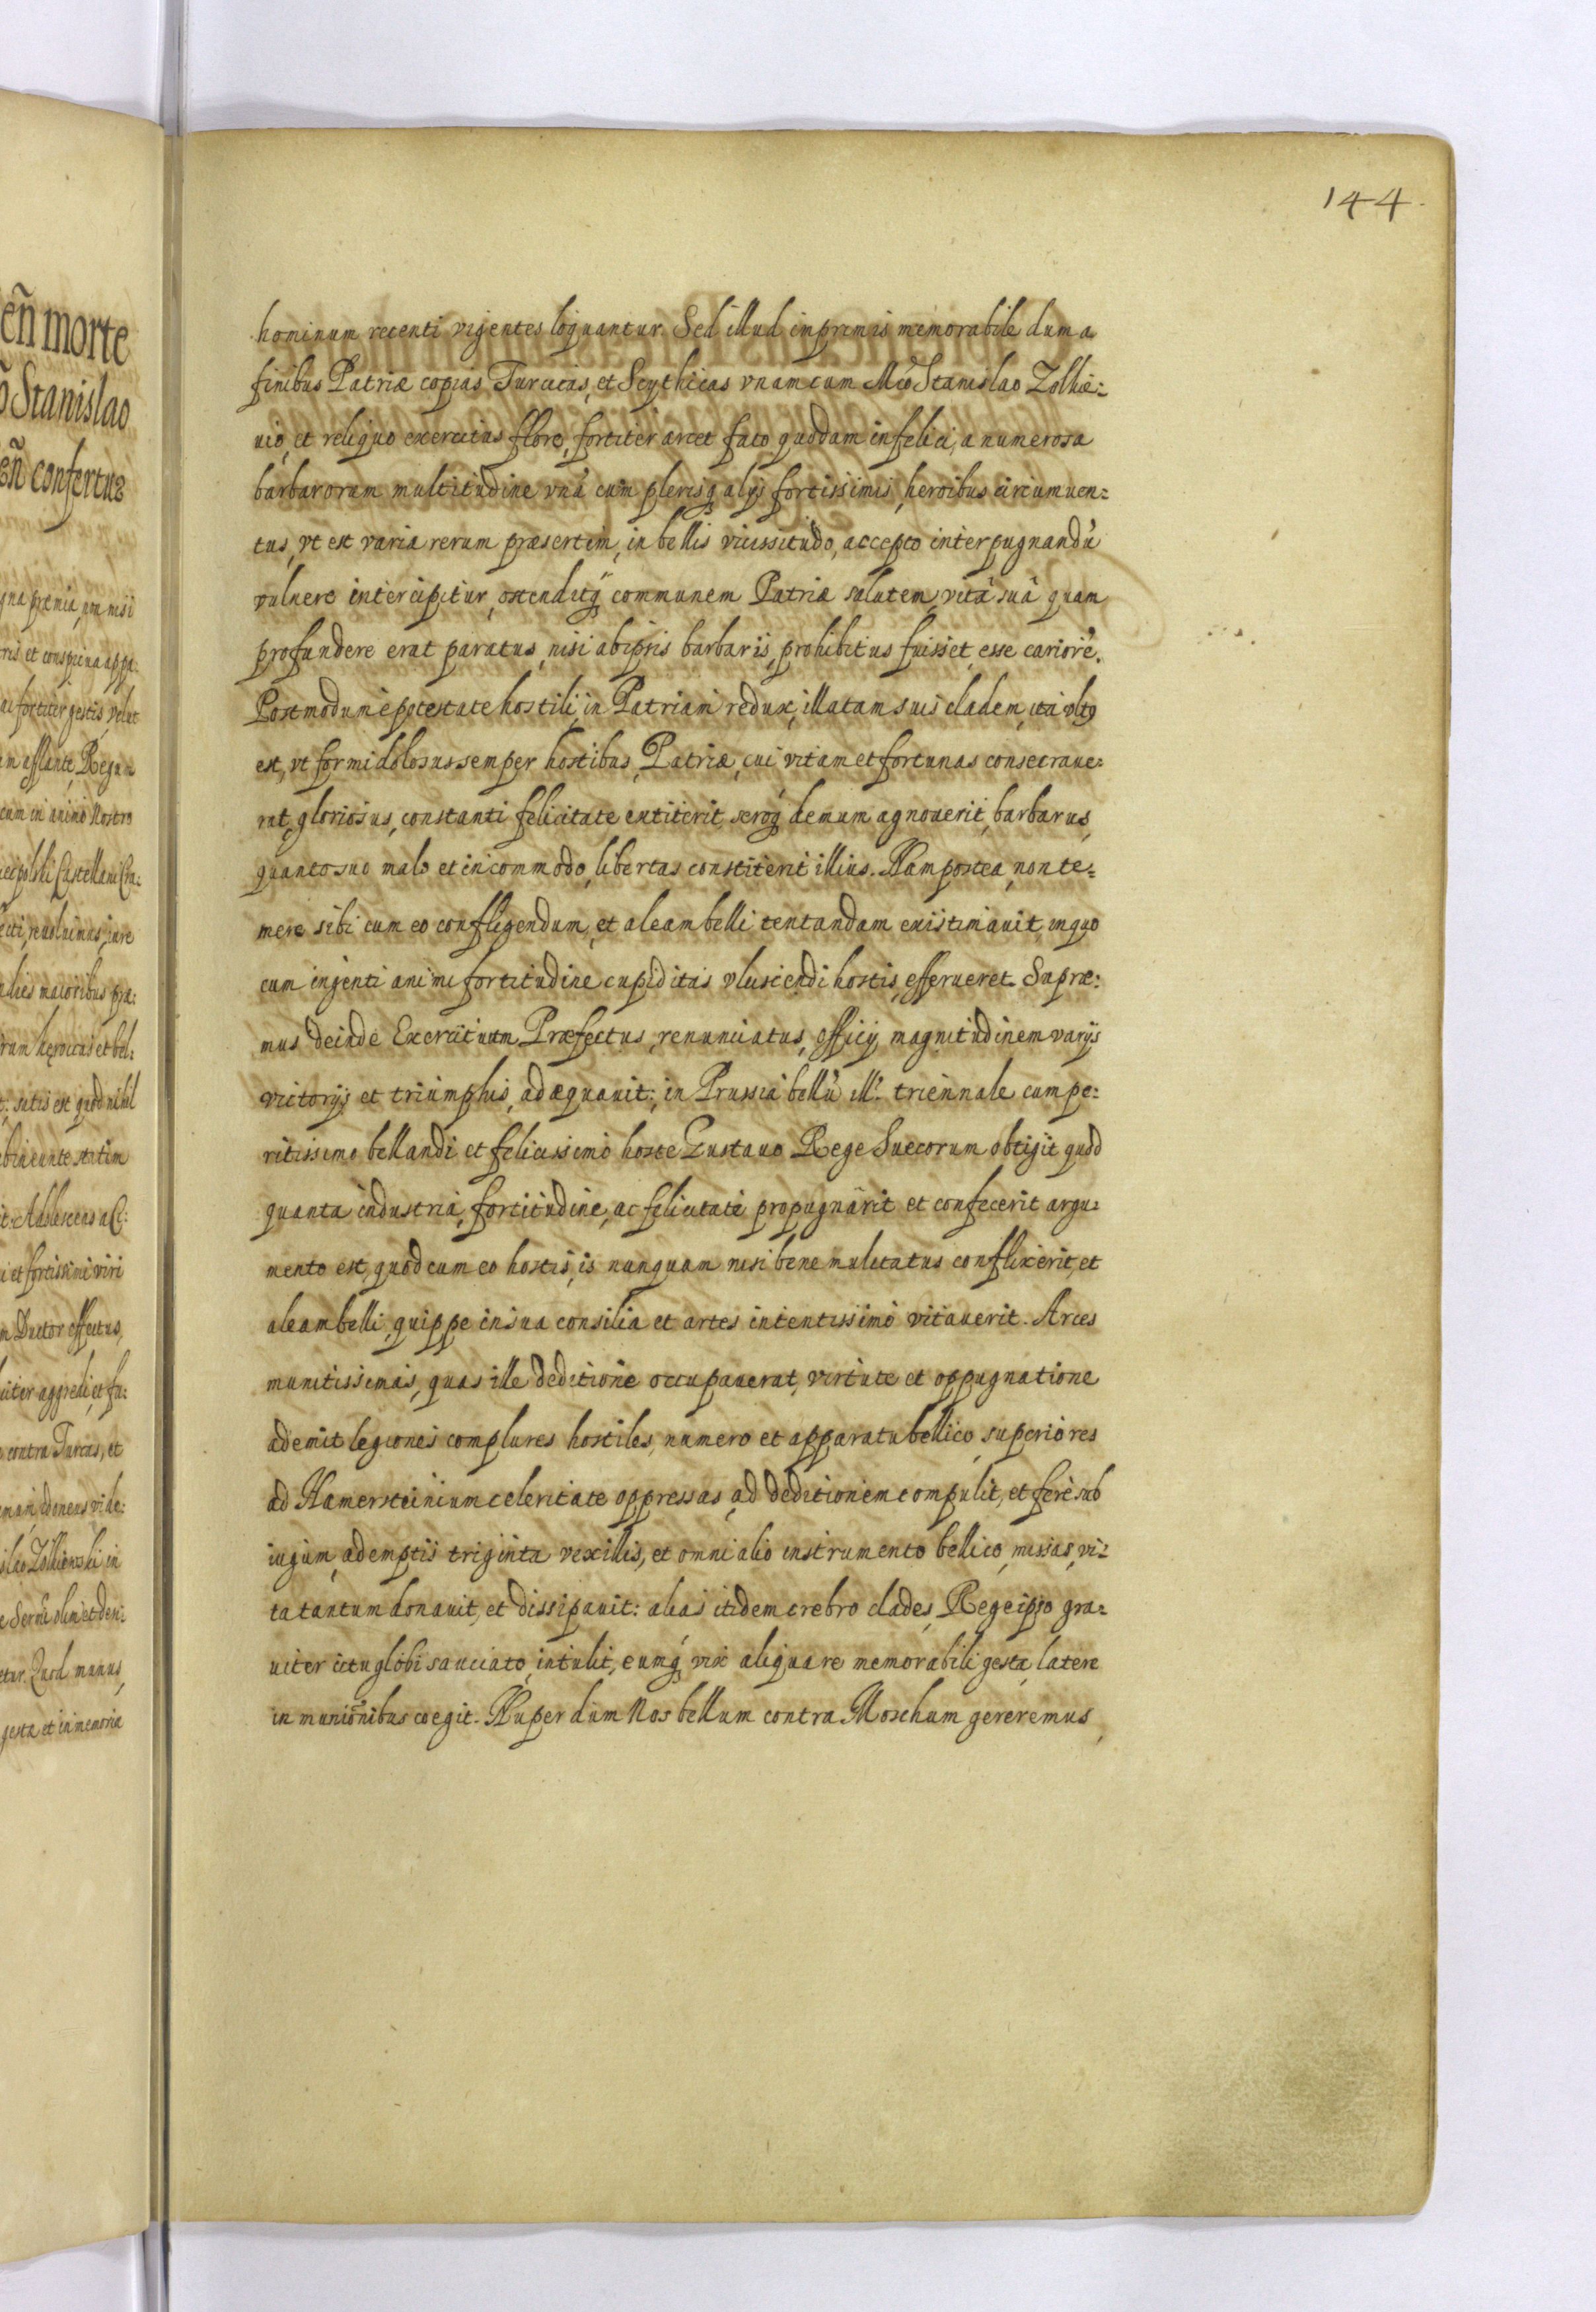 144.
en̄ morte
Stanislao
en̄ confertur
gna præmia, non nisi
ris et conspicua appa:
ac fortiter gestis, velut
am afflante, Regum
cum in animo Nostro
iecpolski Castellani Cra:
ecti, reuoluimus, iure
alies maioribus præ:
rum heroicas et bel:
t: satis est quod nihil
ab ineunte statim
it. Adolescens a C:
i et fortissimi viri
m Ductor effectus,
iter aggredi, et fu:
contra Turcas, et
idoneus vide:
islao Zolkiewski in
e Serm̄i olim et desi:
etur. Quod munus,
gesta et in memoria
hominum recenti vigentes loquantur. Sed illud inprimis memorabile dum a
finibus Patriæ copias Turcicas, et Scythicas vnam cum Mco Stanislao Zolkie:
uio, et reliquo exercitus flore, fortiter arcet fato quodam infelici, a numerosa
barbarorum multitudine vnà cum plerisq́ alijs fortissimis, heroibus circumuen:
tus, vt est varia rerum præsertim, in bellis vicissitudo, accepto inter pugnandū
vulnere intercipitur, ostenditq́ communem Patriæ salutem, vitâ suâ quam
profundere erat paratus, nisi ab ipsis barbaris, prohibitus fuisset, esse cariorē.
Postmodum è potestate hostili, in Patriam redux, illatam suis cladem, ita vltus
est, vt formidolosus semper hostibus, Patriæ, cui vitam et fortunas consecraue:
rat, gloriosus, constanti felicitate extiterit, seroq́ demum agnouerit, barbarus,
quanto suo malo et incommodo, libertas constiterit illius. Nam postea, non te:
mere sibi cum eo confligendum, et aleam belli tentandam existimauit, in quo
cum ingenti animi fortitudine cupiditas vlusciendi hostis, efferueret. Supræ:
mus deinde Exercituum Præfectus, renunciatus, officij magnitudinem varijs
victorijs et triumphis, adæquauit: in Prussia bellū ill: triennale cum pe:
ritissimo bellandi et felicissimo hoste Gustauo Rege Suecorum obtigit quod
quanta industria, fortitudine, ac felicitate propugnârit et confecerit argu:
mento est, quod cum eo hostis, is nunquam nisi bene mulctatus conflixerit, et
aleam belli, quippe in sua consilia et artes intentissimo vitauerit. Arces
munitissimas, quas ille deditione occupauerat, virtute et oppugnatione
ademit legiones complures hostiles, numero et apparatu bellico, superiores
ad Hamersteinium celeritate oppressas, ad deditionem compulit, et ferè sub
iugum, ademptis triginta vexillis, et omni alio instrumento bellico, missas, vi:
ta tantum donauit, et dissipauit: alias itidem crebro clades, Rege ipso gra:
uiter ictu globi sauciato, intulit, eumq́ vix aliqua re memorabili gesta, latere
in munionibus coegit. Nuper dum Nos bellum contra Moschum gereremus,